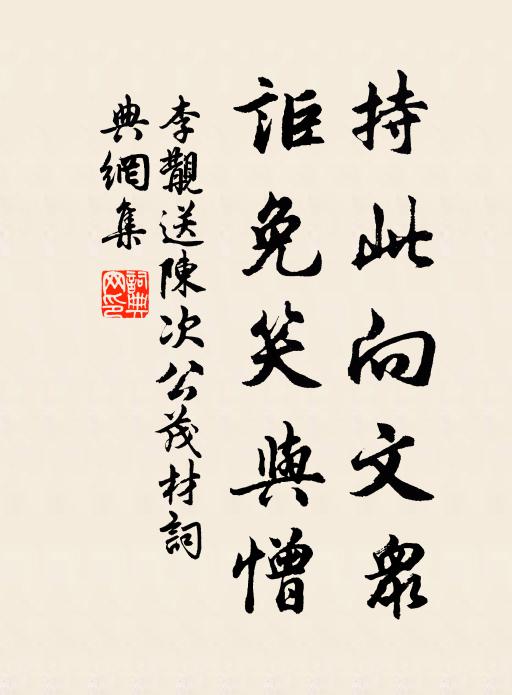 持此向文衆
詎免笑與憎
李觏送陳次公茂材詞
典網集
詞典網印